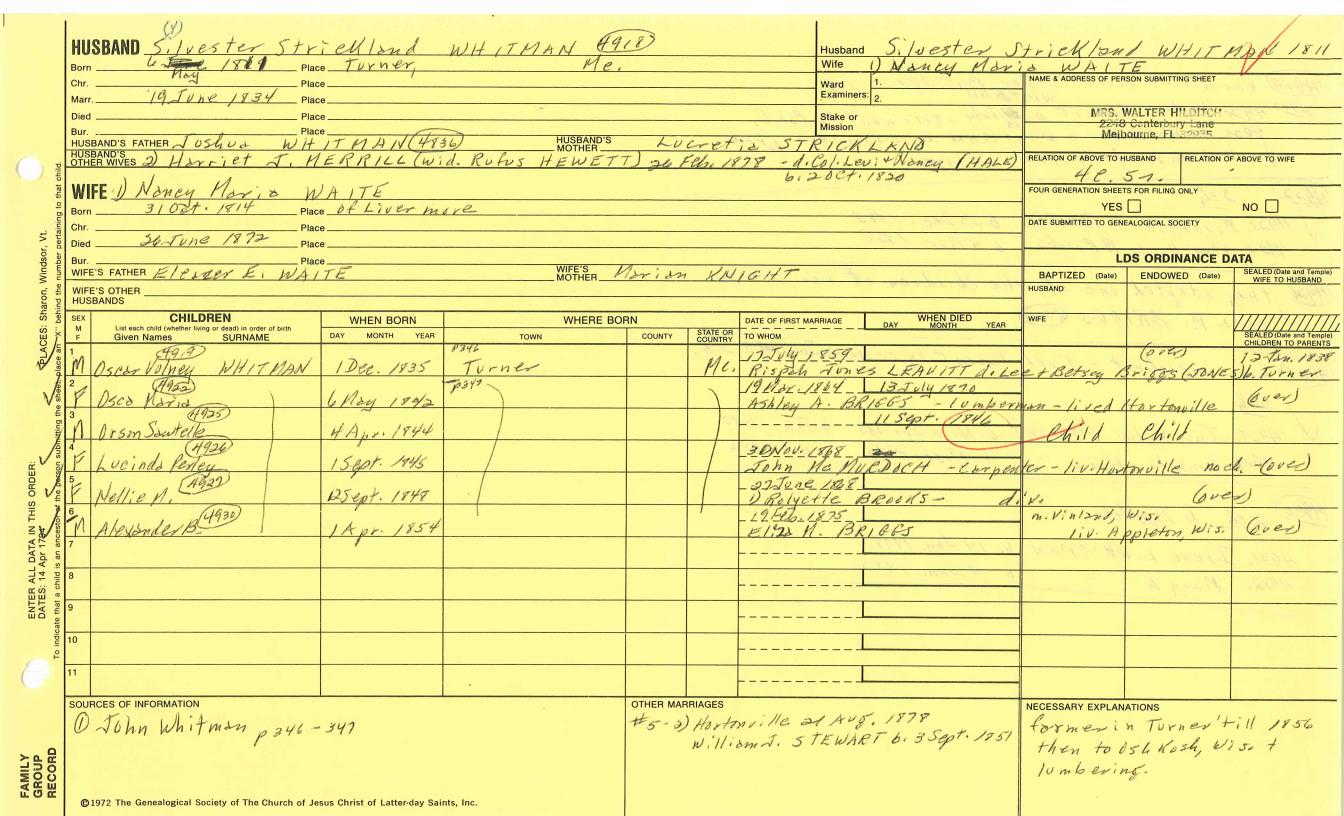 HUSBAND Silvester Strickland WHITMAN 4918
(y)
Born 6 May 1811 Place Turner, Me.
Chr. Place
Marr. 19 June 1834 Place
Died Place
Bur. Place
HUSBAND'S FATHER Joshua WHITMAN (4836) HUSBAND'S MOTHER Lucretia STRICKLAND
HUSBAND'S OTHER WIVES 2) Harriet J. MERRILL (wid. Rufus HEWETT) 26 Feb. 1878 - d. Col. Levi & Nancy (HALE)
b. 2 Oct. 1820
WIFE 1) Nancy Maria WAITE
Born 31 Oct. 1814 Place of Livermore
Chr. Place
Died 26 June 1872 Place
Bur. Place
WIFE'S FATHER Eleazer E. WAITE WIFE'S MOTHER Marian KNIGHT
WIFE'S OTHER HUSBANDS
Husband Silvester Strickland WHITMAN 1811
Wife 1) Nancy Maria WAITE
Ward Examiners: 1.
2.
Stake or Mission
NAME & ADDRESS OF PERSON SUBMITTING SHEET
MRS. WALTER HILDITCH
2248 Canterbury Lane
Melbourne, FL 32935
RELATION OF ABOVE TO HUSBAND RELATION OF ABOVE TO WIFE
4c. 5r.
FOUR GENERATION SHEETS FOR FILING ONLY
YES NO
DATE SUBMITTED TO GENEALOGICAL SOCIETY
LDS ORDINANCE DATA
BAPTIZED (Date) ENDOWED (Date) SEALED (Date and Temple) WIFE TO HUSBAND
HUSBAND
WIFE
SEALED (Date and Temple) CHILDREN TO PARENTS
SEX M F CHILDREN WHEN BORN WHERE BORN DATE OF FIRST MARRIAGE WHEN DIED
List each child (whether living or dead) in order of birth
Given Names SURNAME DAY MONTH YEAR TOWN COUNTY STATE OR COUNTRY TO WHOM DAY MONTH YEAR
1 4919 p346 17 July 1859 (over) 12 Jan. 1838
M Oscar Volney WHITMAN 1 Dec. 1835 Turner Me. Rispah Jones LEAVITT d. Lee & Betsey Briggs (JONES) b. Turner
2 4922 p347 19 Mar. 1864 13 July 1870
F Osca Maria 6 May 1842 Ashley A. BRIGGS - lumberman - lived Hortonville (over)
3 4925 11 Sept. 1846
M Orson Sawtelle 4 Apr. 1844 Child Child
4 4926 30 Nov. 1868
F Lucinda Perley 1 Sept. 1845 John McMURDOCH - carpenter - liv. Hortonville no ch. - (over)
5 4927 27 June 1868
F Nellie M. 12 Sept. 1848 1) Rolyette BROOKS - div. (over)
6 4930 19 Feb. 1875 m. Vinland, Wis.
M Alexander B. 1 Apr. 1854 Eliza M. BRIGGS liv. Appleton, Wis. (over)
7
8
9
10
11
SOURCES OF INFORMATION
① John Whitman p346-347
OTHER MARRIAGES
#5-2) Hortonville 21 Aug. 1878
William J. STEWART b. 3 Sept. 1851
NECESSARY EXPLANATIONS
farmer in Turner 'till 1856
then to Osh Kosh, Wis. &
lumbering.
©1972 The Genealogical Society of The Church of Jesus Christ of Latter-day Saints, Inc.
FAMILY GROUP RECORD
ENTER ALL DATA IN THIS ORDER:
DATES: 14 Apr 1794 PLACES: Sharon, Windsor, Vt.
To indicate that a child is an ancestor of the person submitting the sheet, place an "X" behind the number pertaining to that child.